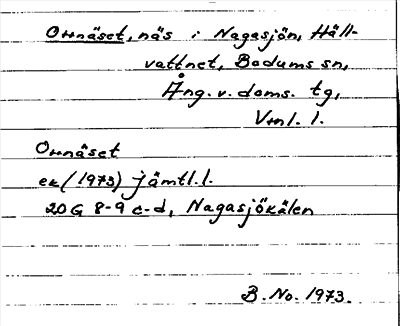 Ornäset, näs i Nagasjön, Häll-
vattnet, Bodums sn,
Ång. v. doms. tg,
Vrnl. l.
Ornäset
ek (1973) jämtl. l.
20 G 8-9 c-d, Nagasjökälen
B. No. 1973.